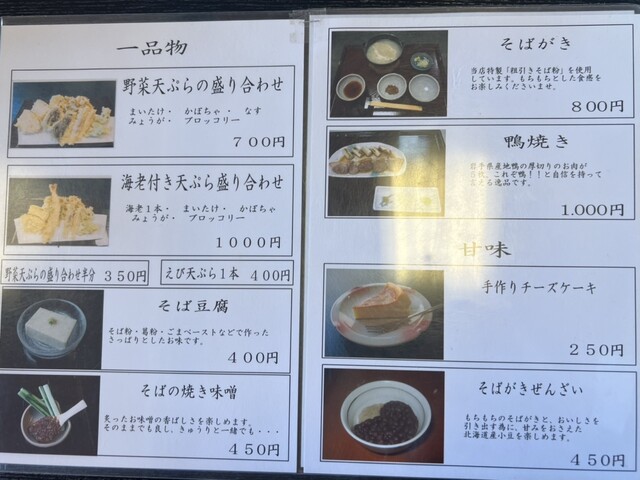 一品物
野菜天ぷらの盛り合わせ
まいたけ・ かぼちゃ・ なす
みょうが・ ブロッコリー
700円
海老付き天ぷら盛り合わせ
海老1本・ まいたけ・ かぼちゃ
みょうが・ ブロッコリー
1000円
野菜天ぷらの盛り合わせ半分 350円
えび天ぷら1本 400円
そば豆腐
そば粉・葛粉・ごまペーストなどで作った
さっぱりとしたお味です。
400円
そばの焼き味噌
炙ったお味噌の香ばしさを楽しめます。
そのままでも良し、きゅうりと一緒でも・・・
450円
そばがき
当店特製「粗引きそば粉」を使用
しています。もちもちとした食感を
お楽しみくださいませ。
800円
鴨焼き
岩手県産地鴨の厚切りのお肉が
これぞ鴨!!と自信を持って
言える逸品です。
1.000円
甘味
手作りチーズケーキ
250円
そばがきぜんざい
もちもちのそばがきと、おいしさを
引き出す為に、甘みをおさえた
北海道産小豆を楽しめます。
450円